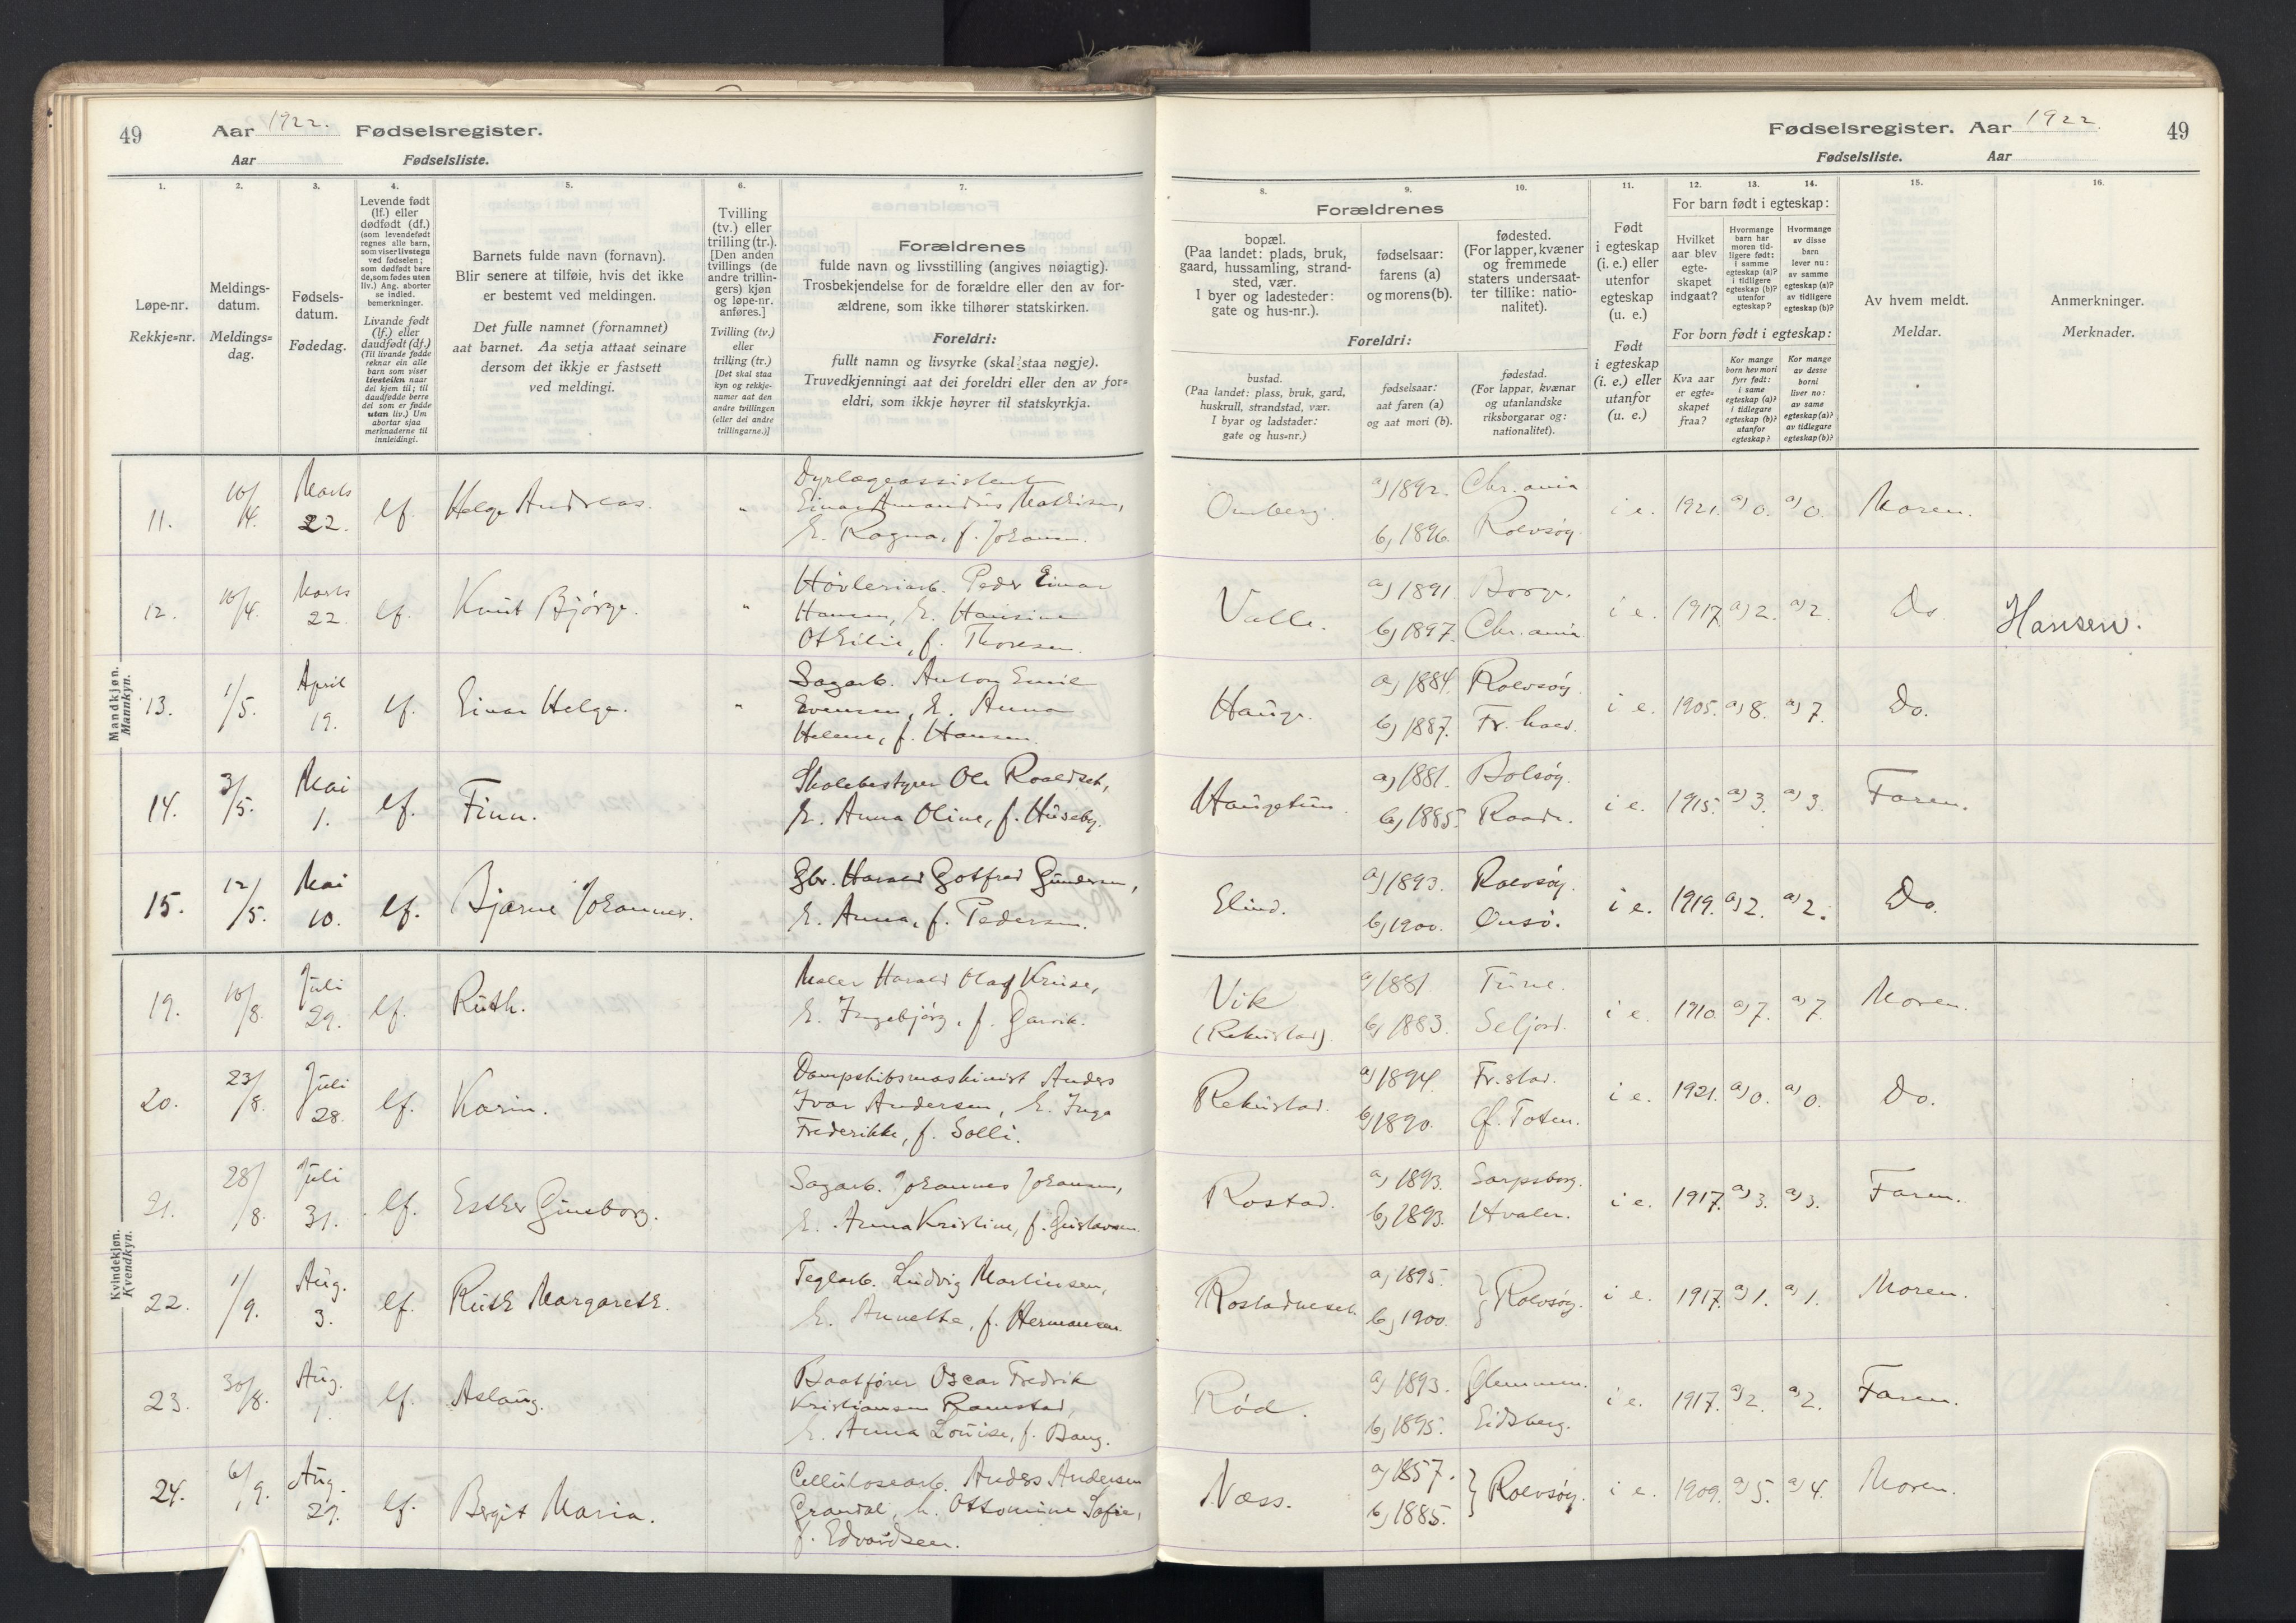 49
Aar 1922. Fødselsregister.
Aar Fødselsliste.
1. 2. 3. 4. 5. 6. 7.
Løpe-nr.
Rekkje=nr.
Meldings-
datum.
Meldings=
dag.
Fødsels-
datum.
Fødedag.
Levende født
(lf.) eller
dødfødt (df.)
(som levendefødt
regnes alle barn,
som viser livstegn
ved fødselen;
som dødfødt bare
de, som fødes uten
liv.) Ang. aborter
se indled.
bemerkninger.
Livande født
(lf.) eller
daudfødt (df.)
(Til livande fødde
reknar ein alle
barn som viser
livsteikn naar
dei kjem til; til
daudfødde berre
dei som er fødde
utan liv.) Um
abortar sjaa
merknaderne til
innleidingi.
Barnets fulde navn (fornavn).
Blir senere at tilføie, hvis det ikke
er bestemt ved meldingen.
Det fulle namnet (fornamnet)
aat barnet. Aa setja attaat seinare
dersom det ikkje er fastsett
ved meldingi.
Tvilling
(tv.) eller
trilling (tr.).
[Den anden
tvillings (de
andre trillin-
gers) kjøn
og løpe-nr.
anføres.]
Tvilling (tv.)
eller
trilling (tr.)
[Det skal staa
kyn og rekkje-
numer aat den
andre tvillingen
(eller dei andre
trillingarne.)]
Forældrenes
fulde navn og livsstilling (angives nøiagtig).
Trosbekjendelse for de forældre eller den av for-
ældrene, som ikke tilhører statskirken.
Foreldri:
fullt namn og livsyrke (skal staa nøgje).
Truvedkjenningi aat dei foreldri eller den av for=
eldri, som ikkje høyrer til statskyrkja.
Mandkjøn.
Mannkyn.
11. 10/4. Marts 22. lf. Helge Andreas. " Dyrlægeassistent
Einar Amandus Mathisen,
h. Ragna, f. Johansen.
12. 10/4. Marts 22. lf. Knut Bjørge. " Høvleriarb. Peder Einar
Hansen, h. Hansine
Othilie, f. Thoresen.
13. 1/5. April 19. lf. Einar Helge. " Sagarb. Anton Emil
Evensen, h. Anna
Helene, f. Hansen.
14. 3/5. Mai 1. lf. Finn. Skolebestyrer Ole Roaldset,
h. Anna Oline, f. Huseby.
15. 12/5. Mai 10. lf. Bjarne Johannes. Gbr. Harald Gotfred Gundersen,
h. Anna, f. Pedersen.
Kvindekjøn.
Kvendkyn.
19. 10/8. Juli 29. lf. Ruth. Maler Harald Olaf Kruse,
h. Ingebjørg, f. Garvik.
20. 23/8. Juli 28. lf. Karin. Dampskibsmaskinist Anders
Ivar Andersen, h. Inga
Frederikke, f. Solli.
21. 28/8. Juli 31. lf. Esther Ginsborg. Sagarb. Johannes Johansen,
h. Anna Kristine, f. Gustavsen.
22. 1/9. Aug. 3. lf. Ruth Margareth. Teglarb. Ludvig Martinsen,
h. Annette, f. Hermansen.
23. 30/8. Aug. 1. lf. Aslaug. Baatfører Oscar Fredrik
Kristiansen Ramstad,
h. Anna Louise, f. Bang.
24. 6/9. Aug. 27. lf. Bergit Maria. Cellulosearb. Anders Andersen
Grandal, h. Ottomine Sofie,
f. Edvardsen.
Fødselsregister. Aar 1922. 49
Fødselsliste. Aar
8. 9. 10. 11. 12. 13. 14. 15. 16.
Forældrenes
bopæl.
(Paa landet: plads, bruk,
gaard, hussamling, strand-
sted, vær.
I byer og ladesteder:
gate og hus-nr.).
fødselsaar:
farens (a)
og morens (b).
fødested.
(For lapper, kvæner
og fremmede
staters undersaat-
ter tillike: natio-
nalitet).
Foreldri:
bustad.
(Paa landet: plass, bruk, gard,
huskrull, strandstad, vær.
I byar og ladstader:
gate og hus=nr.)
fødselsaar:
aat faren (a)
og aat mori (b).
fødestad.
(For lappar, kvænar
og utanlandske
riksborgarar og:
nationalitet).
Født
i egteskap
(i. e.) eller
utenfor
egteskap
(u. e.)
Født
i egteskap
(i. e.) eller
utanfor
(u. e.)
For barn født i egteskap:
Hvilket
aar blev
egte-
skapet
indgaat?
Hvormange
barn har
moren tid-
ligere født:
i samme
egteskap (a)?
i tidligere
egteskap (b)?
utenfor
egteskap?
Hvormange
av disse
barn
lever nu:
av samme
egteskap (a)?
av tidligere
egteskap (b)?
For born født i egteskap:
Kva aar
er egte=
skapet
fraa?
Kor mange
born hev mori
fyrr født:
i same
egteskap (a)?
i tidlegare
egteskap (b)?
utanfor
egteskap?
Kor mange
av desse
borni
liver no:
av same
egteskap (a)?
av tidlegare
egteskap (b)?
Av hvem meldt.
Meldar.
Anmerkninger.
Merknader.
Omberg. a) 1892. Chr.ania b) 1896. Rolvsøy. i e. 1921. a) 0. a) 0. Moren.
Valle. a) 1891 Borge. b) 1897. Chr.ania i e. 1917. a) 2. a) 2. Do Hansen.
Hauge. a) 1884. Rolvsøy. b) 1887. Fr.hald. i e. 1905. a) 8. a) 7. Do.
Haugetun. a) 1881. Bolsøy. b) 1885. Raade. i e. 1915. a) 3. a) 3. Faren.
Elind. a) 1893. Rolvsøy. b) 1900. Onsø. i e. 1919. a) 2. a) 2. Do.
Vik
(Rekustad). a) 1881 Tune. b) 1883. Seljord. i e. 1910. a) 7. a) 7. Moren.
Rekustad. a) 1894. Fr.stad. b) 1890. Ø. Toten. i e. 1921. a) 0. a) 0. Do.
Rostad. a) 1893. Sarpsborg. b) 1893. Hvaler. i e. 1917. a) 3. a) 3. Faren.
Rostadneset. a) 1895. b) 1900. } Rolvsøy. i e. 1917. a) 1. a) 1. Moren.
Rød. a) 1893. Glemmen. b) 1895. Eidsberg. i e. 1917. a) 2. a) 2. Faren.
Næss. a) 1857. b) 1885. } Rolvsøy. i e. 1909. a) 5. a) 4. Moren.